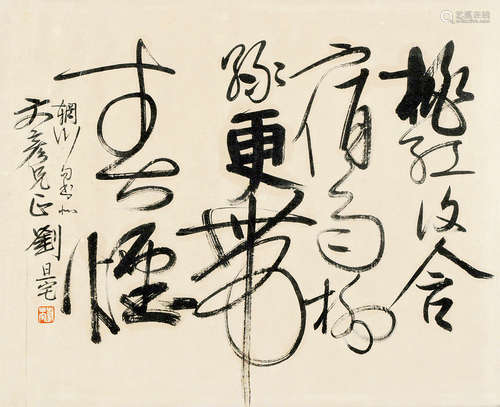 桃紅復含
宿雨柳
綠更帶
春煙
輞川句
文彥兄正 劉旦宅